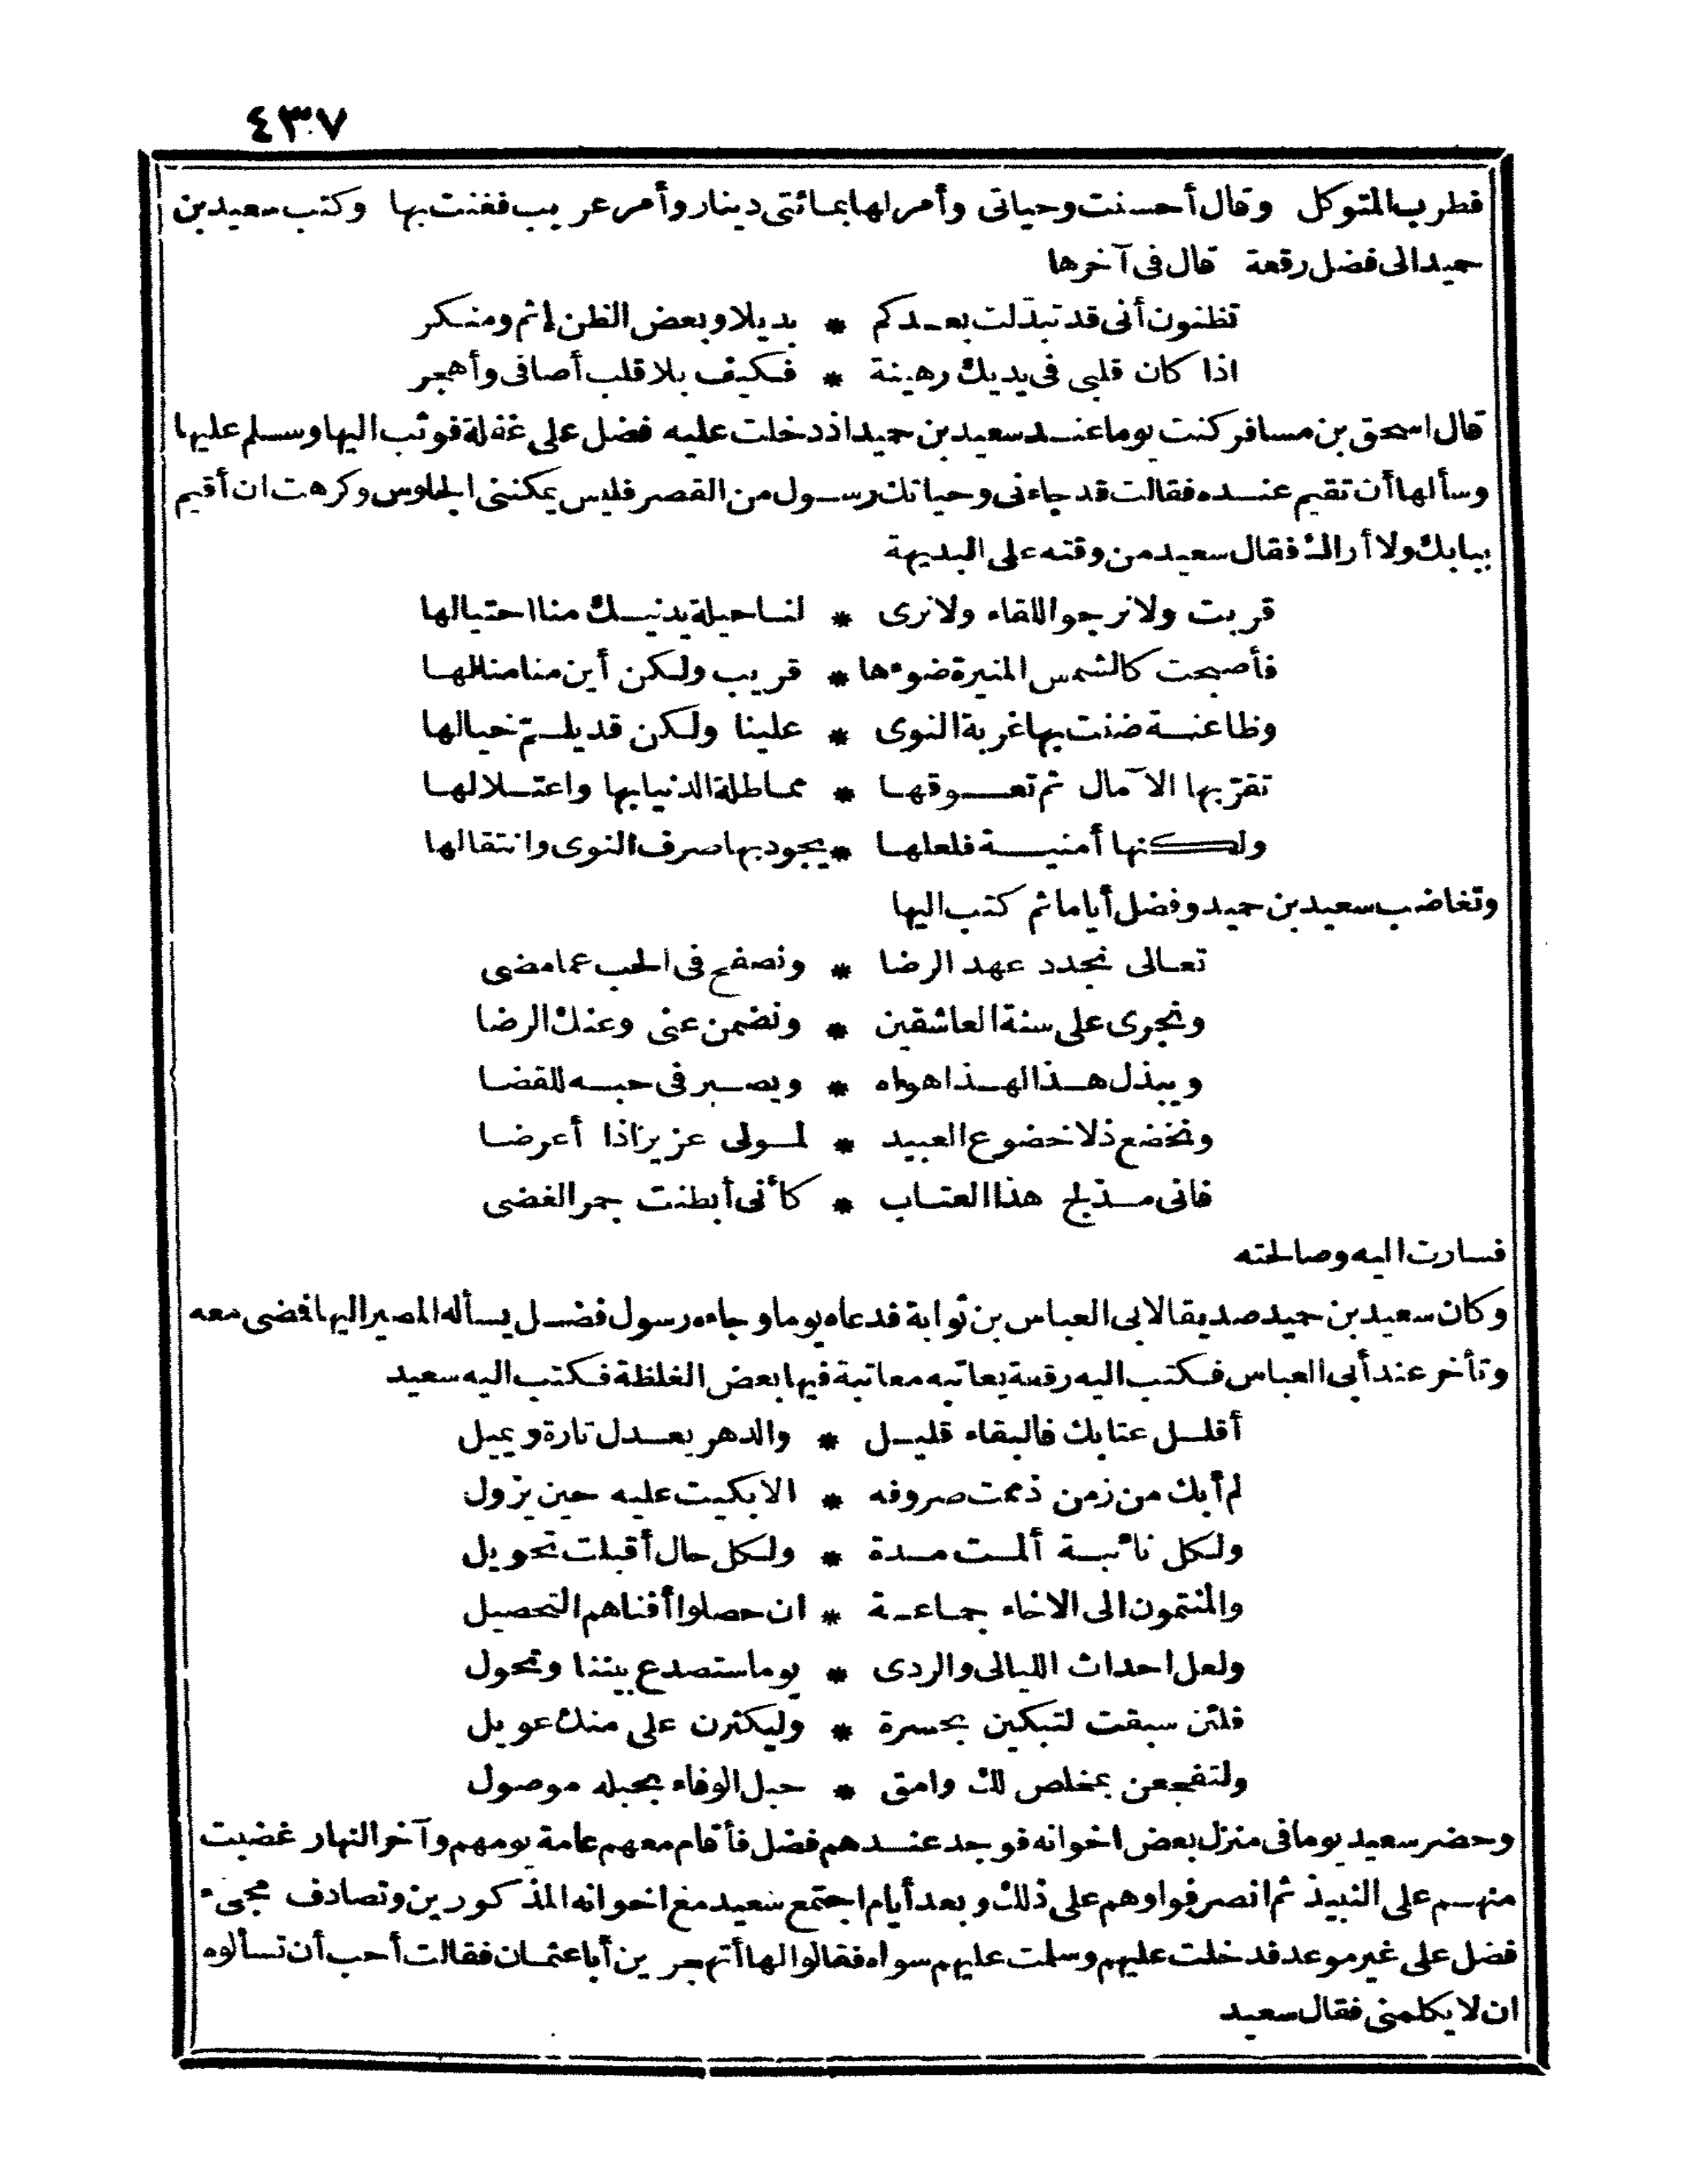 ٤٣٧
فطرب المتوكل وقال أحسنت وحياتى وأمر لها بمائتى دينار وأمر عريب فغنت بها وكتب سعيد بن
حميد الى فضل رقعة قال فى آخرها
تظنون أنى قد تبدّلت بعدكم * بديلا وبعض الظن إثم ومنكر
اذا كان قلبى فى يديك رهينة * فكيف بلا قلب أصافى وأهجر
قال اسحق بن مسافر كنت يوما عند سعيد بن حميد اذ دخلت عليه فضل على غفلة فوثب اليها وسلم عليها
وسألها أن تقيم عنده فقالت قد جاءنى وحياتك رسول من القصر فليس يمكننى الجلوس وكرهت ان أقيم
ببابك ولا أراك فقال سعيد من وقته على البديهة
قربت ولا نرجو اللقاء ولا نرى * لنا حيلة يدنيك منا احتيالها
فأصبحت كالشمس المنيرة ضوءها * قريب ولكن أين منا منالها
وظاعنة ضنت بها غربة النوى * علينا ولكن قد يلمّ خيالها
تقرّبها الآمال ثم تعوقها * مماطلة الدنيا بها واعتلالها
ولكنها أمنية فلعلها * يجود بها صرف النوى وانتقالها
وتغاضب سعيد بن حميد وفضل أياما ثم كتب اليها
تعالى نجدد عهد الرضا * ونصفح فى الحب عما مضى
ونجرى على سنة العاشقين * ونضمن عنى وعنك الرضا
ويبذل هذا لهذا هواه * ويصبر فى حبه للقضا
ونخضع ذلا خضوع العبيد * لمولى عزيز اذا أعرضا
فانى مذ لج هذا العتاب * كأنى أبطنت جمر الغضى
فسارت اليه وصالحته
وكان سعيد بن حميد صديقا لابى العباس بن ثوابة فدعاه يوما وجاءه رسول فضل يسأله المصير اليها فمضى معه
وتأخر عند أبى العباس فكتب اليه رقعة يعاتبه معاتبة فيها بعض الغلظة فكتب اليه سعيد
أقلل عتابك فالبقاء قليل * والدهر يعدل تارة ويميل
لم أبك من زمن ذممت صروفه * الا بكيت عليه حين يزول
ولكل نائبة ألمت مدة * ولكل حال أقبلت تحويل
والمنتمون الى الاخاء جماعة * ان حصلوا أفناهم التحصيل
ولعل احداث الليالى والردى * يوما ستصدع بيننا وتحول
فلئن سبقت لتبكين بحسرة * وليكثرن على منك عويل
ولتفجعن بمخلص لك وامق * حبل الوفاء بحبله موصول
وحضر سعيد يوما فى منزل بعض اخوانه فوجد عندهم فضل فأقام معهم عامة يومهم وآخر النهار غضبت
منهم على النبيذ ثم انصرفوا وهم على ذلك وبعد أيام اجتمع سعيد مع اخوانه المذكورين وتصادف مجىء
فضل على غير موعد فدخلت عليهم وسلمت عليهم سواه فقالوا لها أتهجرين أبا عثمان فقالت أحب أن تسألوه
ان لا يكلمنى فقال سعيد